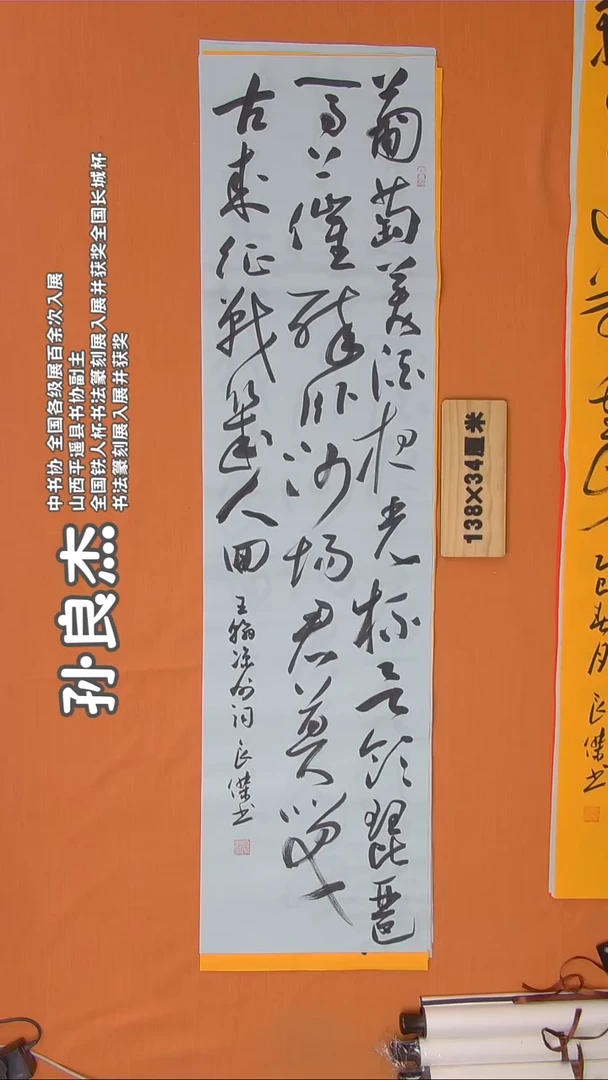 葡萄美酒夜光杯欲飲琵琶
馬上催醉卧沙場君莫笑
古来征戰幾人回 王翰凉州词 良傑书
138×34厘米
孙良杰
中书协 全国各级展百余次入展
山西平遥县书协副主
全国铁人杯书法篆刻展入展并获奖全国长城杯
书法篆刻展入展并获奖
乙巳春月 良傑书